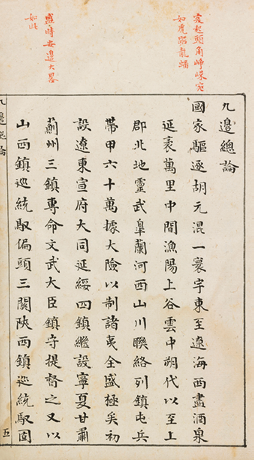 起頭角崢嶸宛
如虎踞龍蟠
時安邊大畧
如
九邊總論
國家驅逐胡元混一寰宇東至遼海西盡酒泉
延袤萬里中間漁陽上谷雲中朔代以至上
郡北地靈武皐蘭河西山川聯絡列鎮屯兵
帶甲六十萬據大險以制諸夷全盛極矣初
設遼東宣府大同延綏四鎮繼設寧夏甘肅
薊州三鎮專命文武大臣鎮守提督之又以
山西鎮巡統馭偏頭三關陜西鎮巡統馭固
五